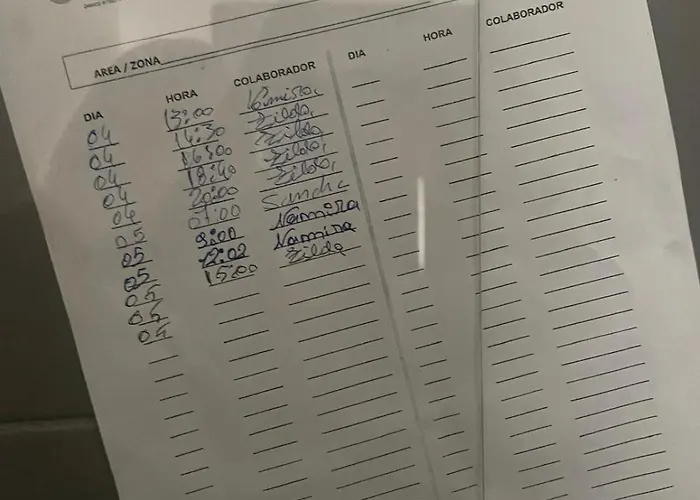 AREA / ZONA
DIA HORA COLABORADOR DIA HORA COLABORADOR
04 13:00
04 14:30 Zilda,
04 16:00 Zilda
04 18:40 Zilda,
04 20:00 Zilda,
05 07:00 Sandra
05 9:00 Namira
05 12:02 Namira
05 15:00 Zilda
05
04